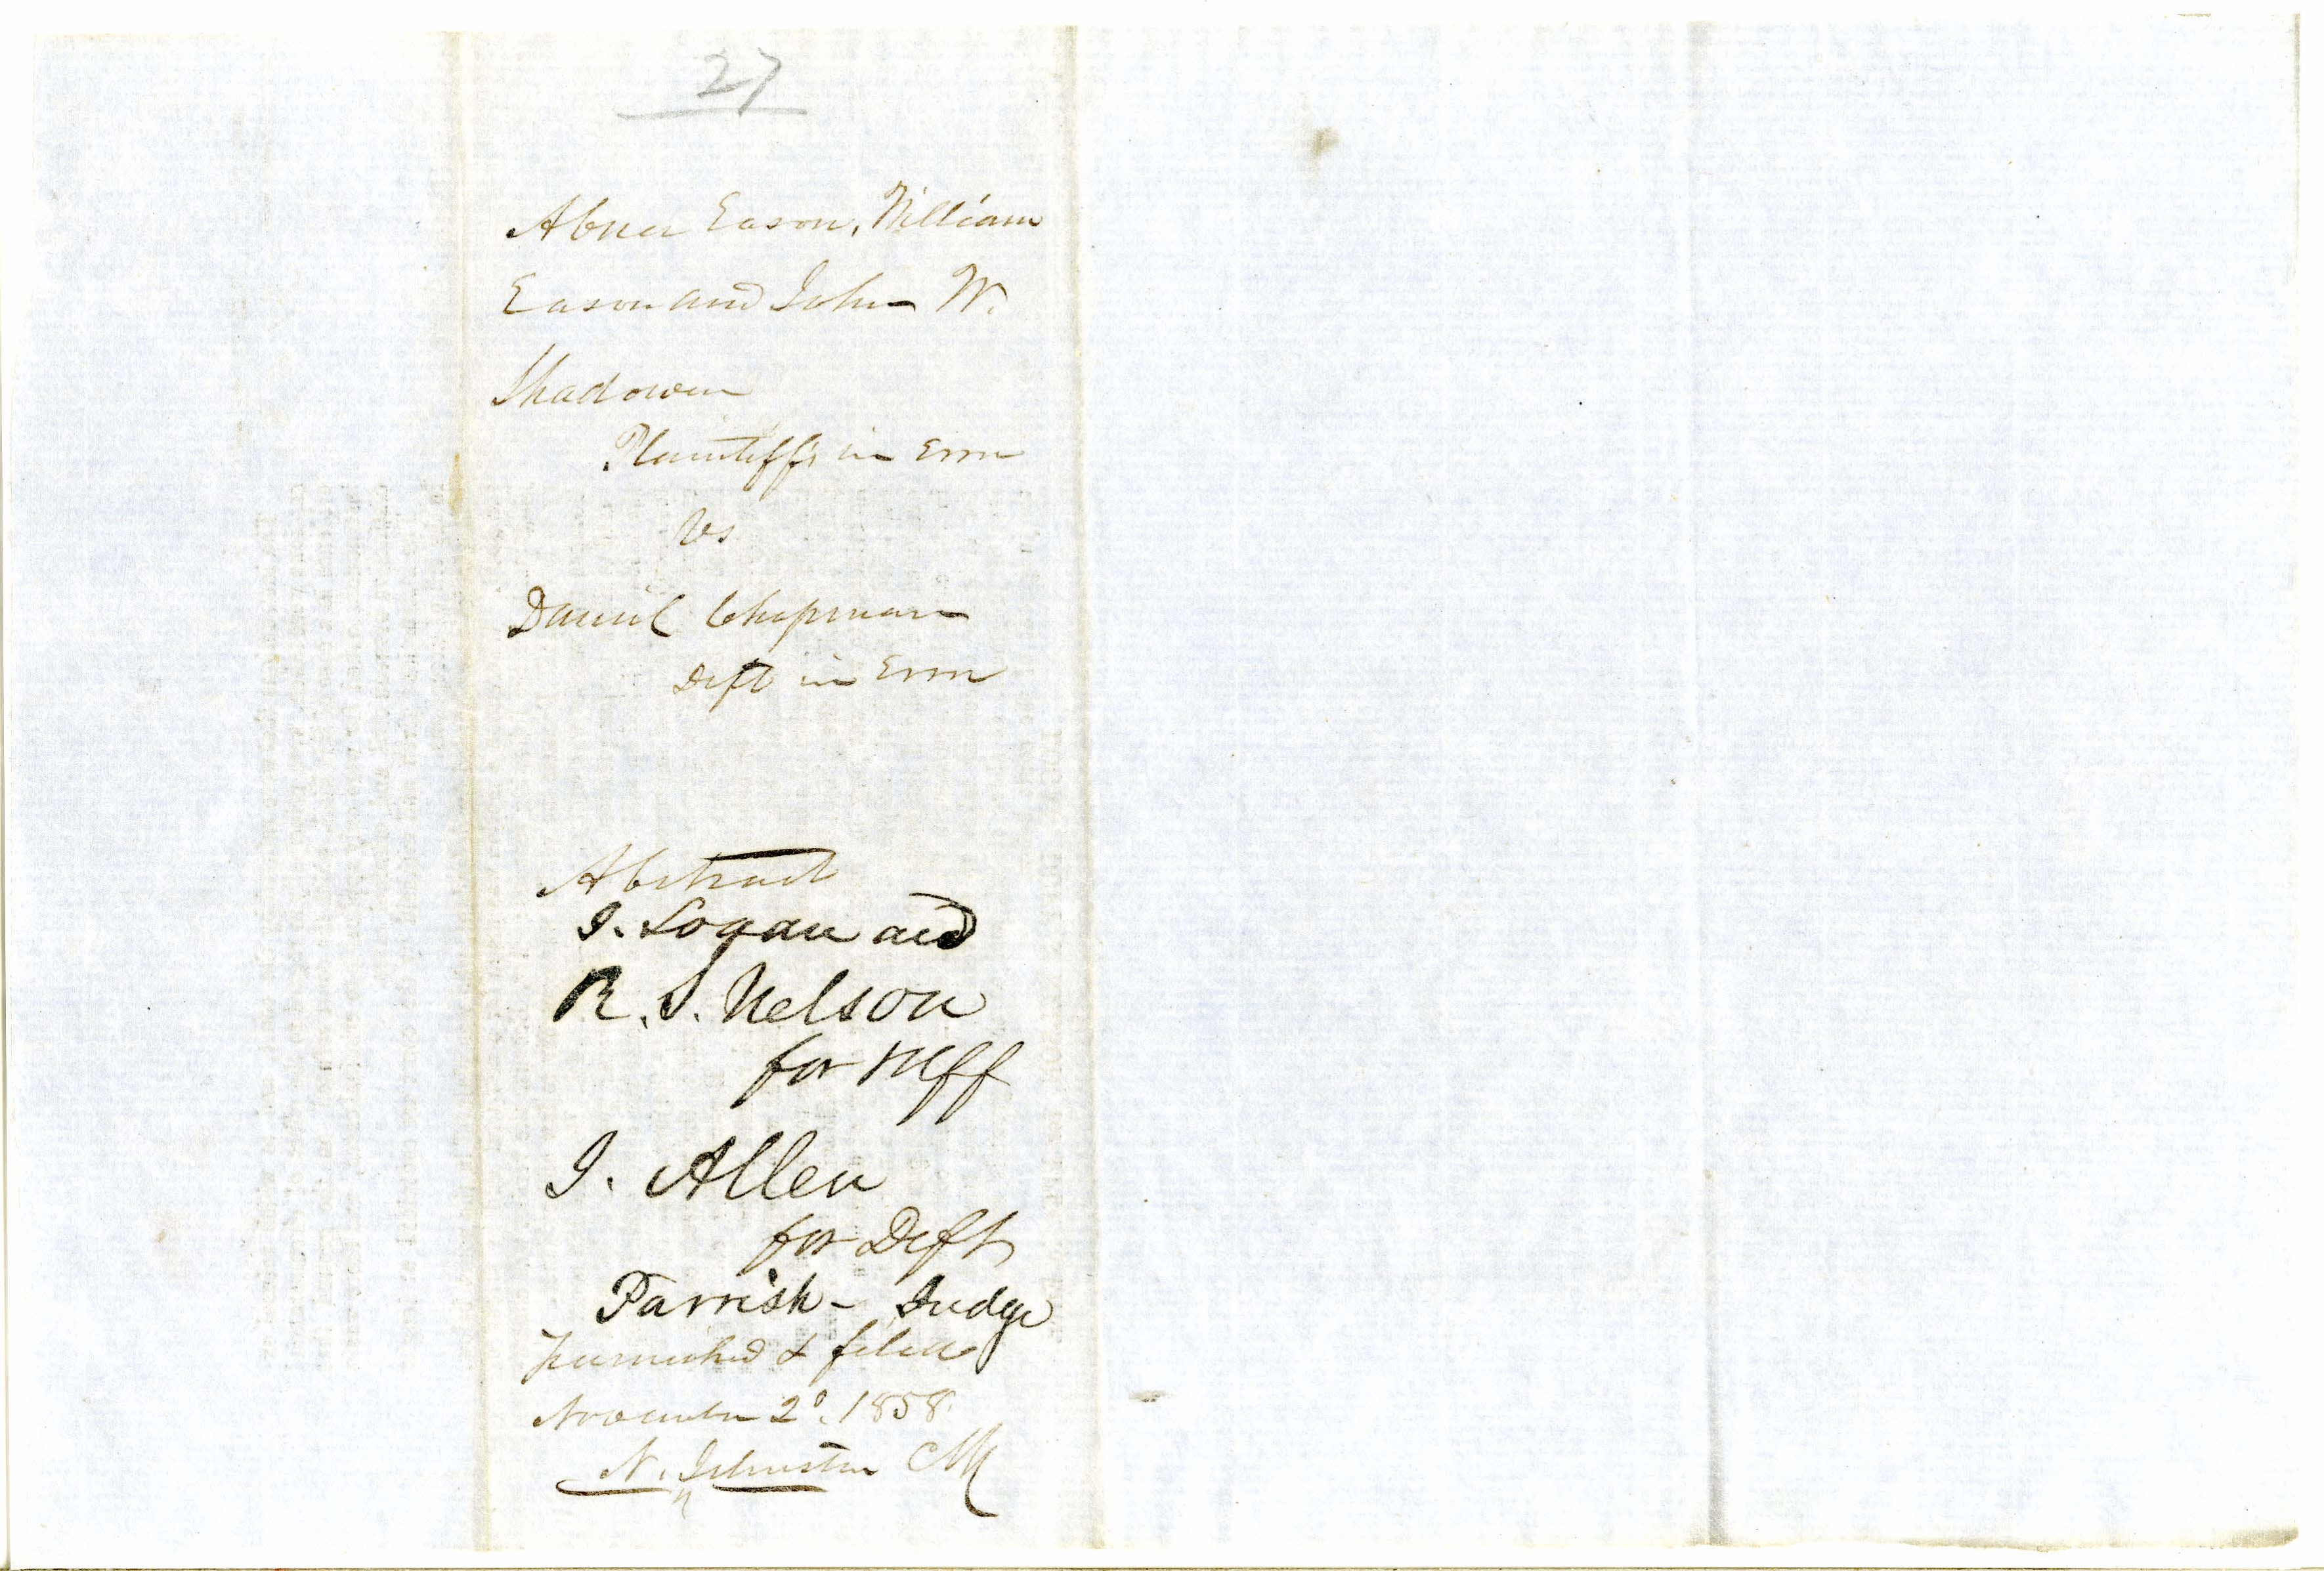 27
Abner Eason, William
Eason and John W.
Shadowen
Plaintiffs in Error
vs
Daniel Chapman
Deft in Error
Abstract
I. Logan and
R. S. Nelson
for Plff
I. Allen
for Deft
Parrish - Judge
Furnished & filed
November 2d. 1858.
N. Johnston Clk